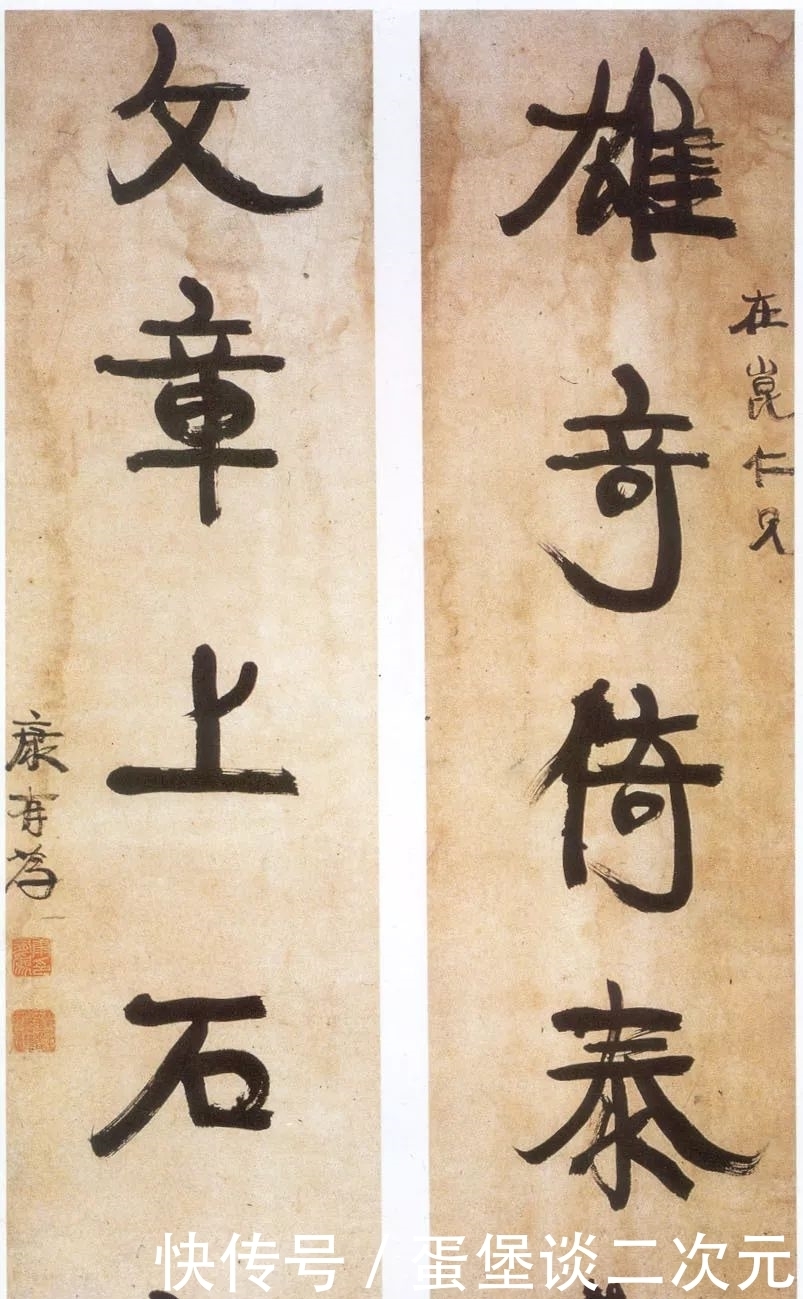 在崑仁兄
雄奇倚泰
文章上石
康有為
快传号/蛋堡谈二次元